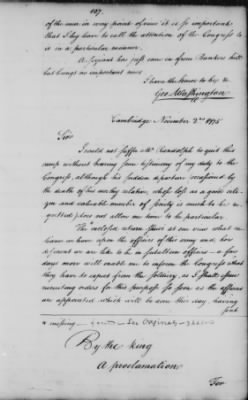 of the men in every point of view it is so important
that I beg leave to call the attention of the Congress to
it in a particular manner.
A Serjeant has just come in from Bunkers Hill
but brings no important news
I have the Honor to be &c
Geo. Washington
Cambridge November 2nd 1775
Sir
I could not suffer Mr Randolph to quit this
camp without bearing some testimony of my duty to the
Congress, although his sudden departure occasioned by
the death of his worthy relation, whose loss as a good citi-
zen and valuable member of Society is much to be re-
gretted) does not allow me time to be particular.
The inclosed return shews at one view what re-
liance we have upon the officers of this army and how
deficient we are like to be in subaltern officers - a few
days more will enable me to inform the Congress what
they have to expect from the soldiery, as I shall issue
recruiting orders for this purpose so soon as the officers
are appointed which will be done this day, having
sent
* missing See Original
By the king
A proclamation
For